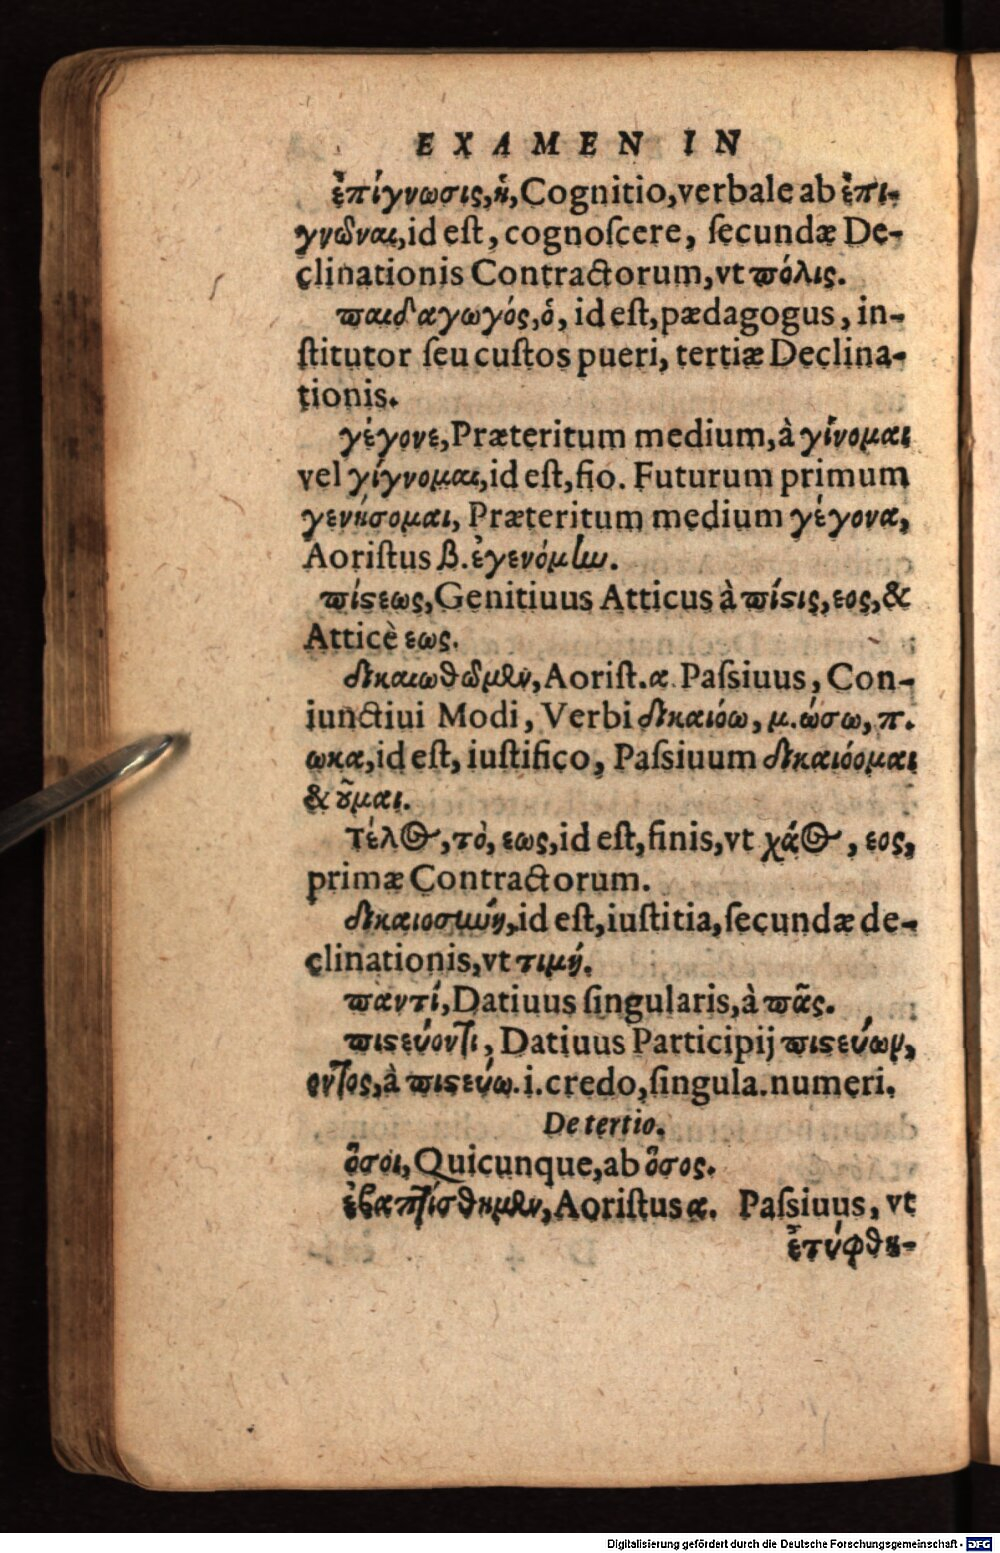 EXAMEN IN
ἐπίγνωσις, ἡ, Cognitio, verbale ab ἐπι-
γνῶναι, id eſt, cognoſcere, ſecundæ De-
clinationis Contractorum, vt πόλις.
παιδαγωγός, ὁ, id eſt, pædagogus, in-
ſtitutor ſeu cuſtos pueri, tertiæ Declina-
tionis.
γέγονε, Præteritum medium, à γίνομαι
vel γίγνομαι, id eſt, fio. Futurum primum
γενήσομαι, Præteritum medium γέγονα,
Aoriſtus β. ἐγενόμην.
πίϛεως, Genitiuus Atticus à πίϛις, εος, &
Atticè εως.
δικαιωθῶμεν, Aoriſt. α Paſsiuus, Con-
iunctiui Modi, Verbi δικαιόω, μ. ώσω, π.
ωκα, id eſt, iuſtifico, Paſsiuum δικαιόομαι
& οῦμαι.
Τέλος, τὸ, εως, id eſt, finis, vt χάος, εος,
primæ Contractorum.
δικαιοσύνη, id eſt, iuſtitia, ſecundæ de-
clinationis, vt τιμή.
παντί, Datiuus ſingularis, à πᾶς.
πιϛεύοντι, Datiuus Participij πιϛεύων,
οντος, à πιϛεύω. i. credo, ſingula. numeri.
De tertio.
ὅσοι, Quicunque, ab ὅσος.
ἐβαπτίσθημεν, Aoriſtus α. Paſsiuus, vt
ἐτύφθη-
Digitalisierung gefördert durch die Deutsche Forschungsgemeinschaft - DFG